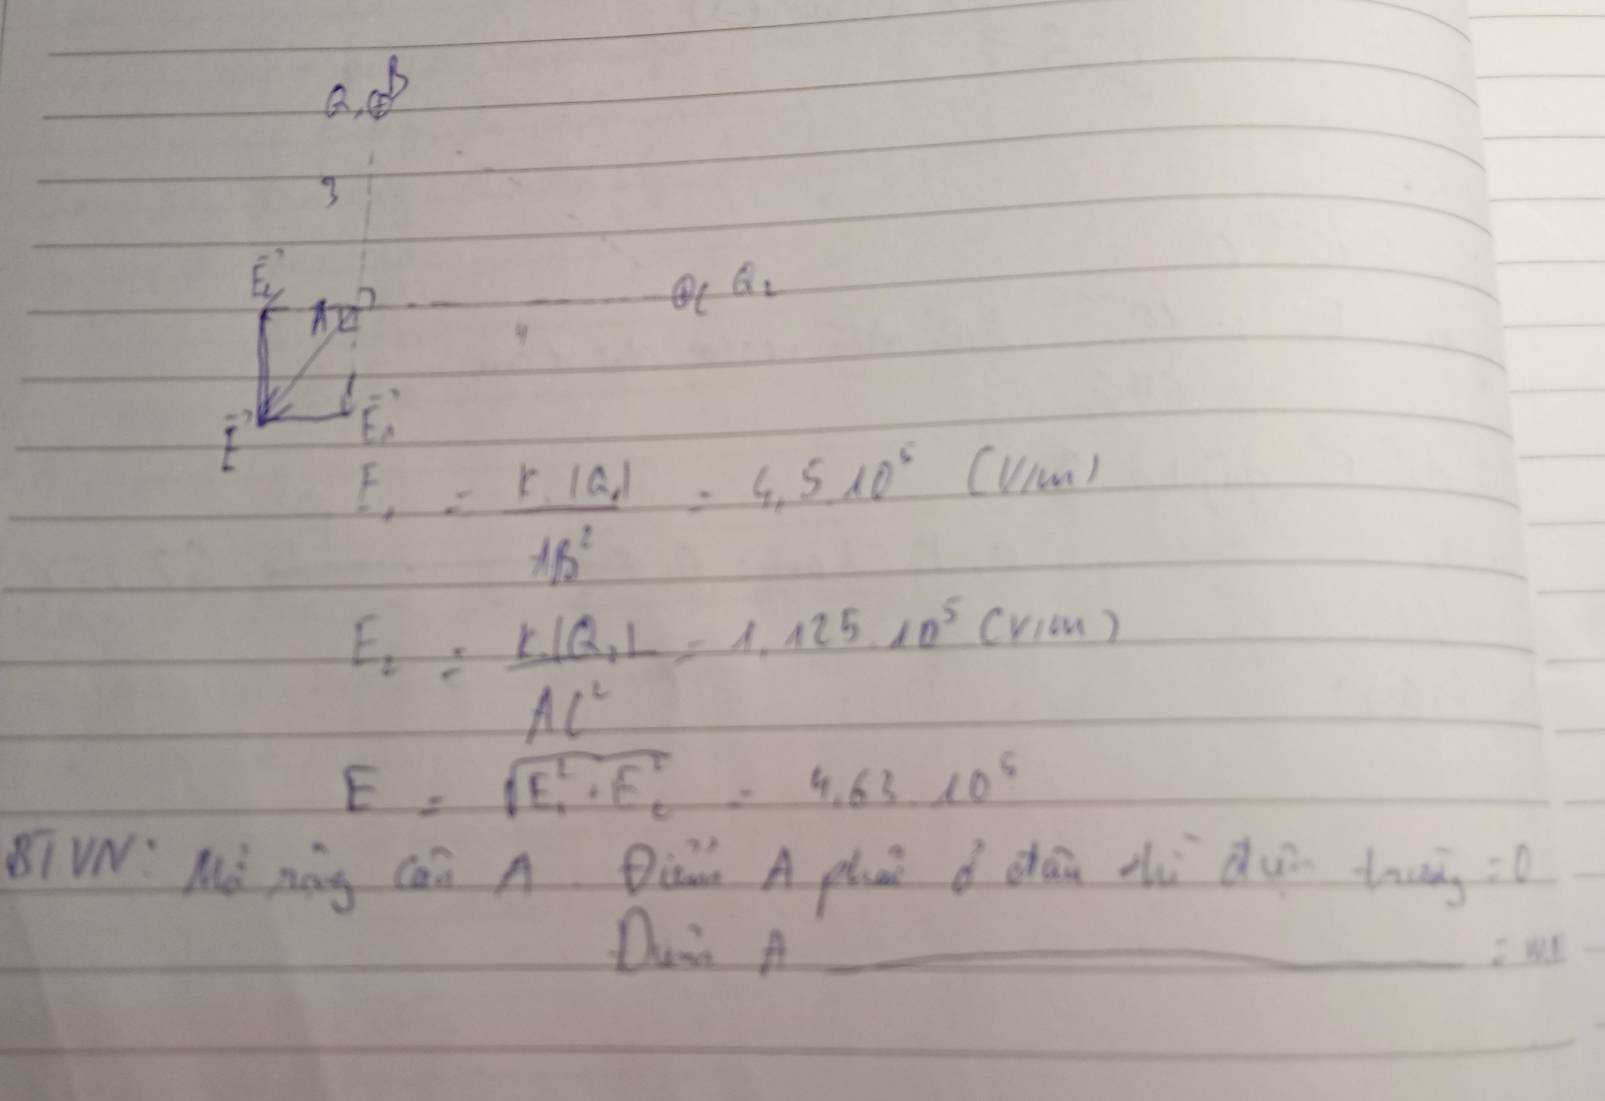 Q₁ ⊕ B
3
E₂ A ⊕C Q₂
4
E E₁
E₁ = k.|Q₁| / AB² = 4,5.10⁵ (V/m)
E₂ = k.|Q₂| / AC² = 1,125.10⁵ (V/m)
E = √E₁² + E₂² = 4,63.10⁵
BTVN: Mở rộng câu A. Điểm A phải ở đâu thì điện trường = 0
Điểm A =